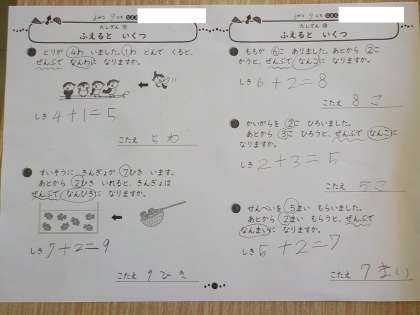 たしざん ⑪
ふえると いくつ
とりが 4わ いました。1わ とんで くると、
ぜんぶで なんわに なりますか。
しき 4+1=5
こたえ 5わ
すいそうに きんぎょが 7ひき います。
あとから 2ひき いれると、きんぎょは
ぜんぶで なんびきに なりますか。
しき 7+2=9
こたえ 9ひき
たしざん
ふえると いくつ
ももが 6こ ありました。あとから 2こ
かうと、ぜんぶで なんこに なりますか。
しき 6+2=8
こたえ 8こ
かいがらを 2こ ひろいました。
あとから 3こ ひろうと、ぜんぶで なんこに
なりますか。
しき 2+3=5
こたえ 5こ
せんべいを 5まい もらいました。
あとから 2まい もらうと、ぜんぶで
なんまいに なりますか。
しき 5+2=7
こたえ 7まい